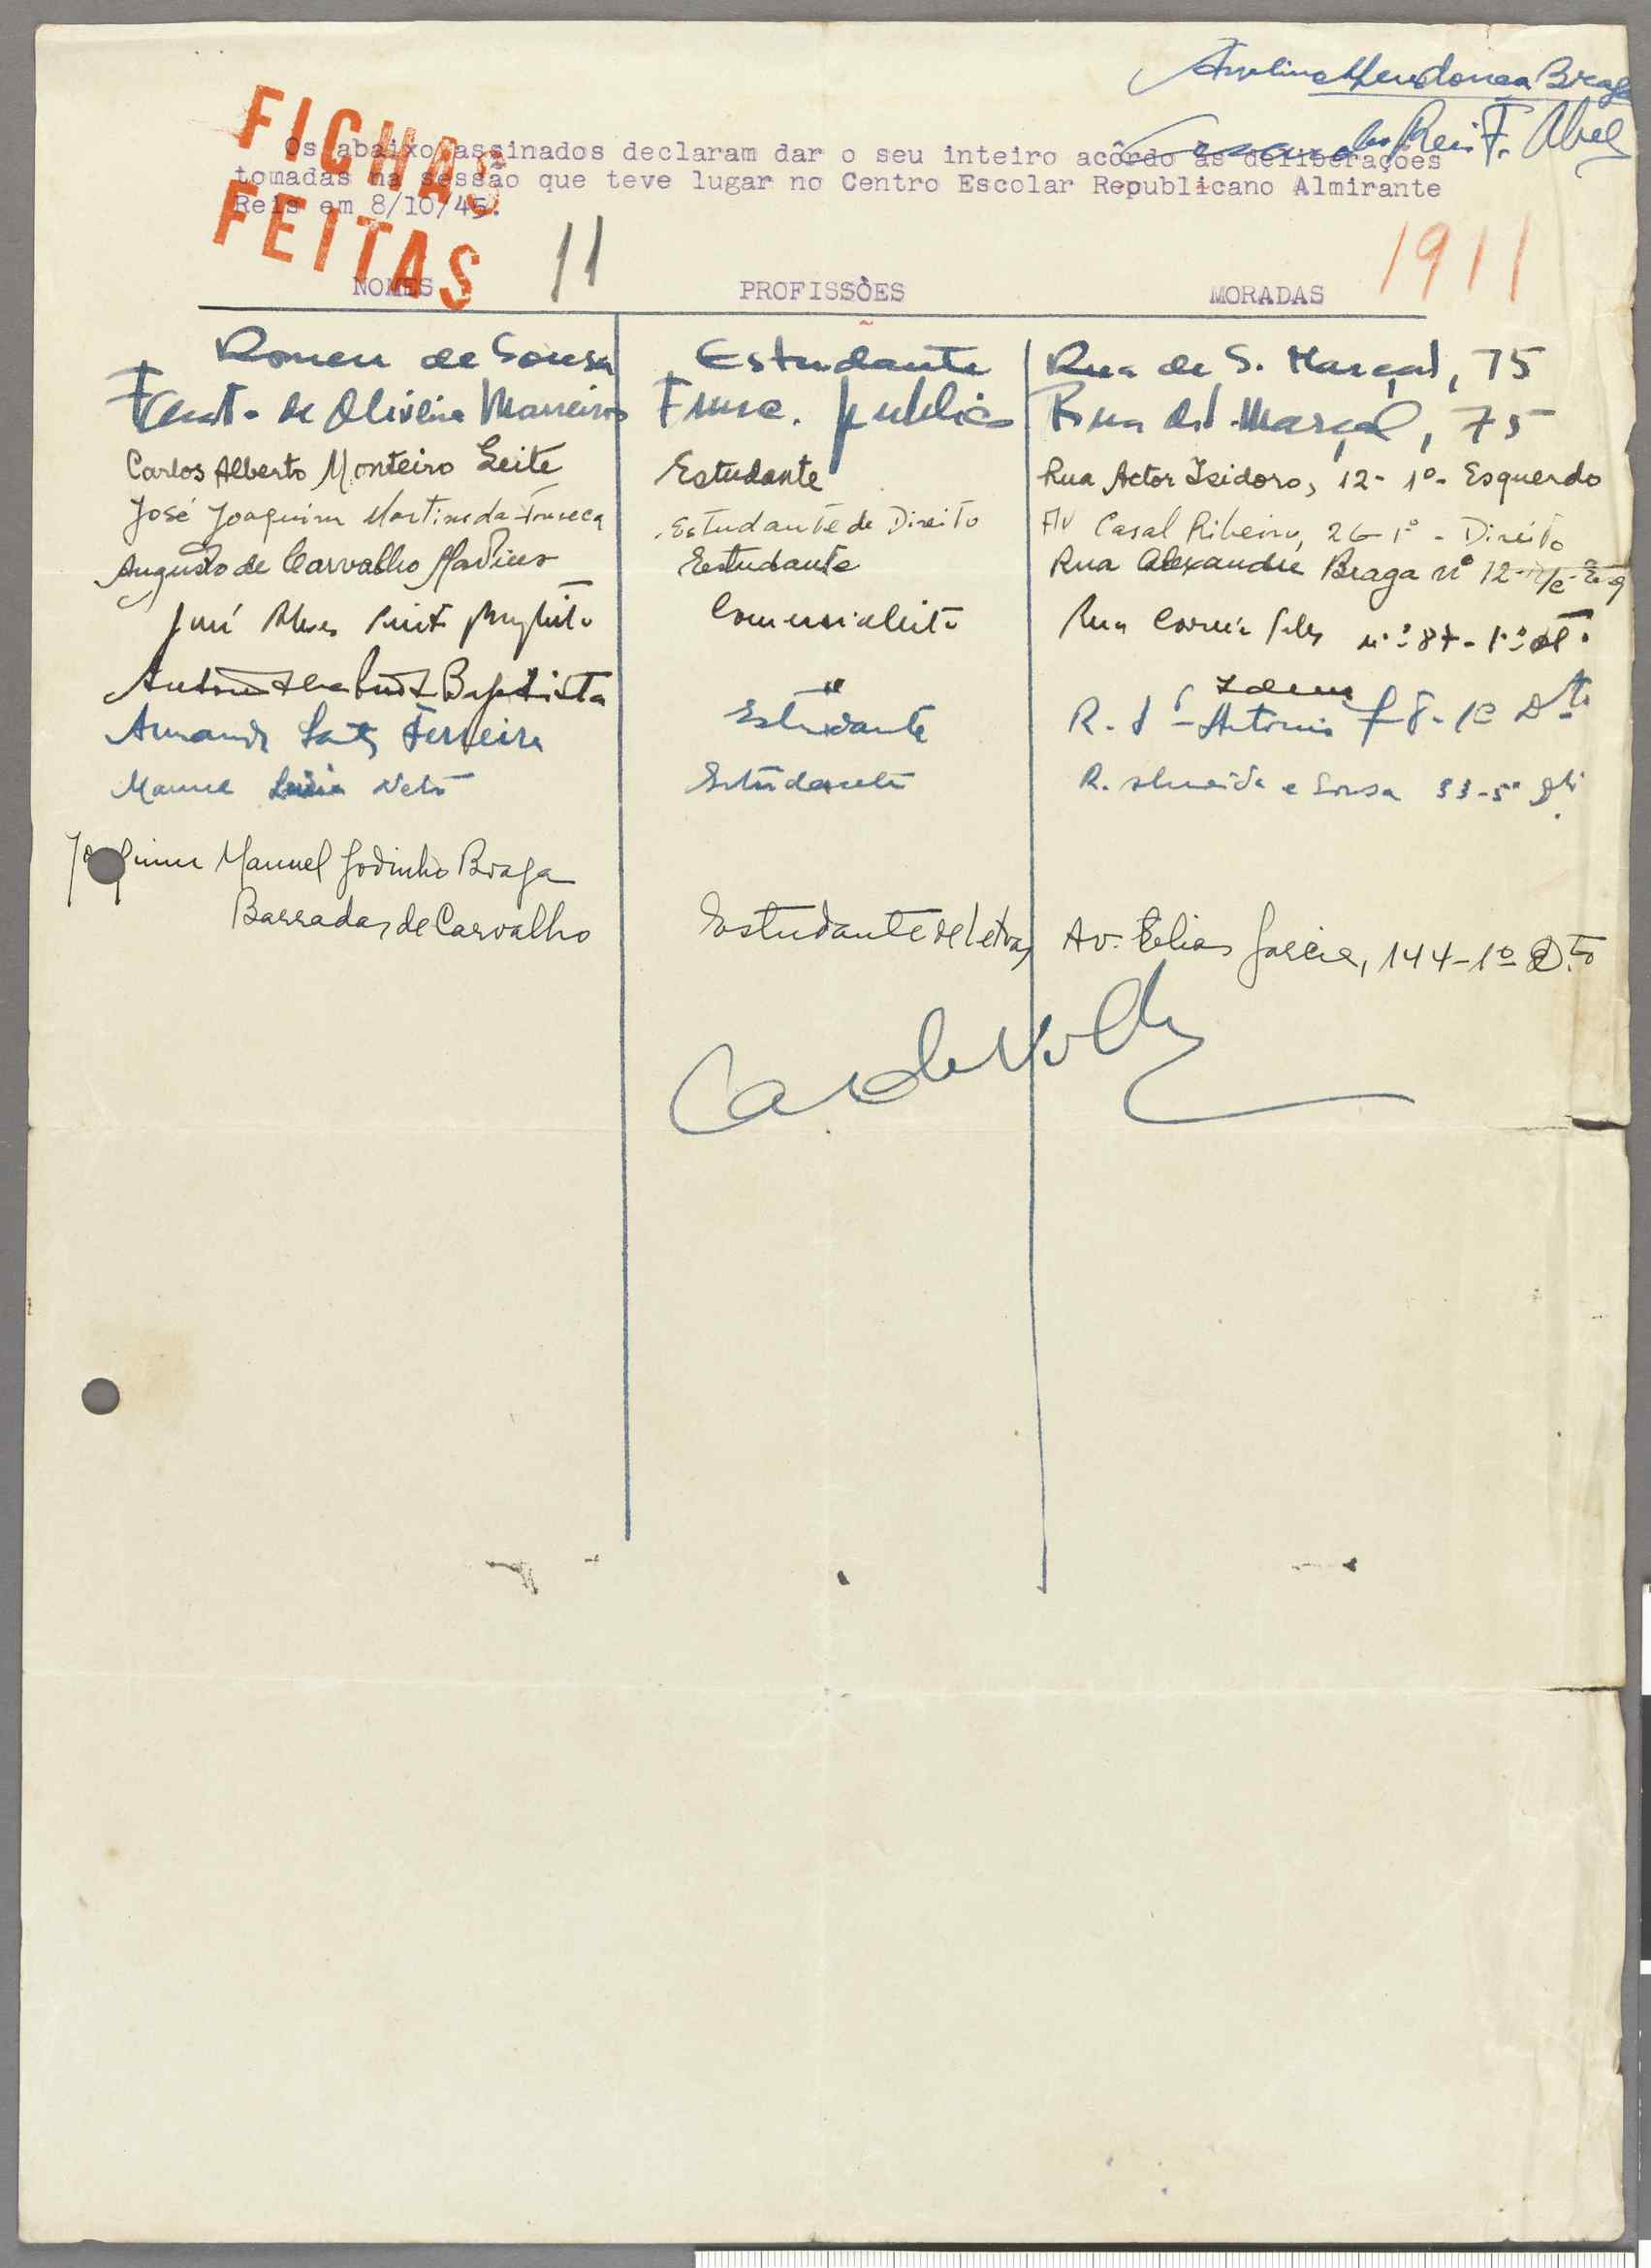 Mendonça Braga
Reis F. Abel
FICHAS
FEITAS
Os abaixo assinados declaram dar o seu inteiro acôrdo ás deliberações
tomadas na sessão que teve lugar no Centro Escolar Republicano Almirante
Reis em 8/10/45.
11
1911
NOMES PROFISSÕES MORADAS
Romeu de Sousa Estudante Rua de S. Marçal, 75
de Oliveira Marreiros Func. publico Rua de S. Marçal, 75
Carlos Alberto Monteiro Leite Estudante Rua Actor Isidoro, 12-1º- Esquerdo
José Joaquim Martins da Fonseca Estudante de Direito AV Casal Ribeiro, 26 1º - Direito
Augusto de Carvalho Martins Estudante Rua Alexandre Braga nº 12-r/c-Esq
José Alves Comercialista Rua Correia Teles n.º 87-1º
Baptista " Idem
Armando Santos Ferreira Estudante R. Stº Antonio 8-1º Dto
Manuel Neto Estudante R. Almeida e Sousa 33-5º Dto
Joaquim Manuel Godinho Braga
Barradas de Carvalho Estudante de letras Av. Elias Garcia, 144-1º Dto